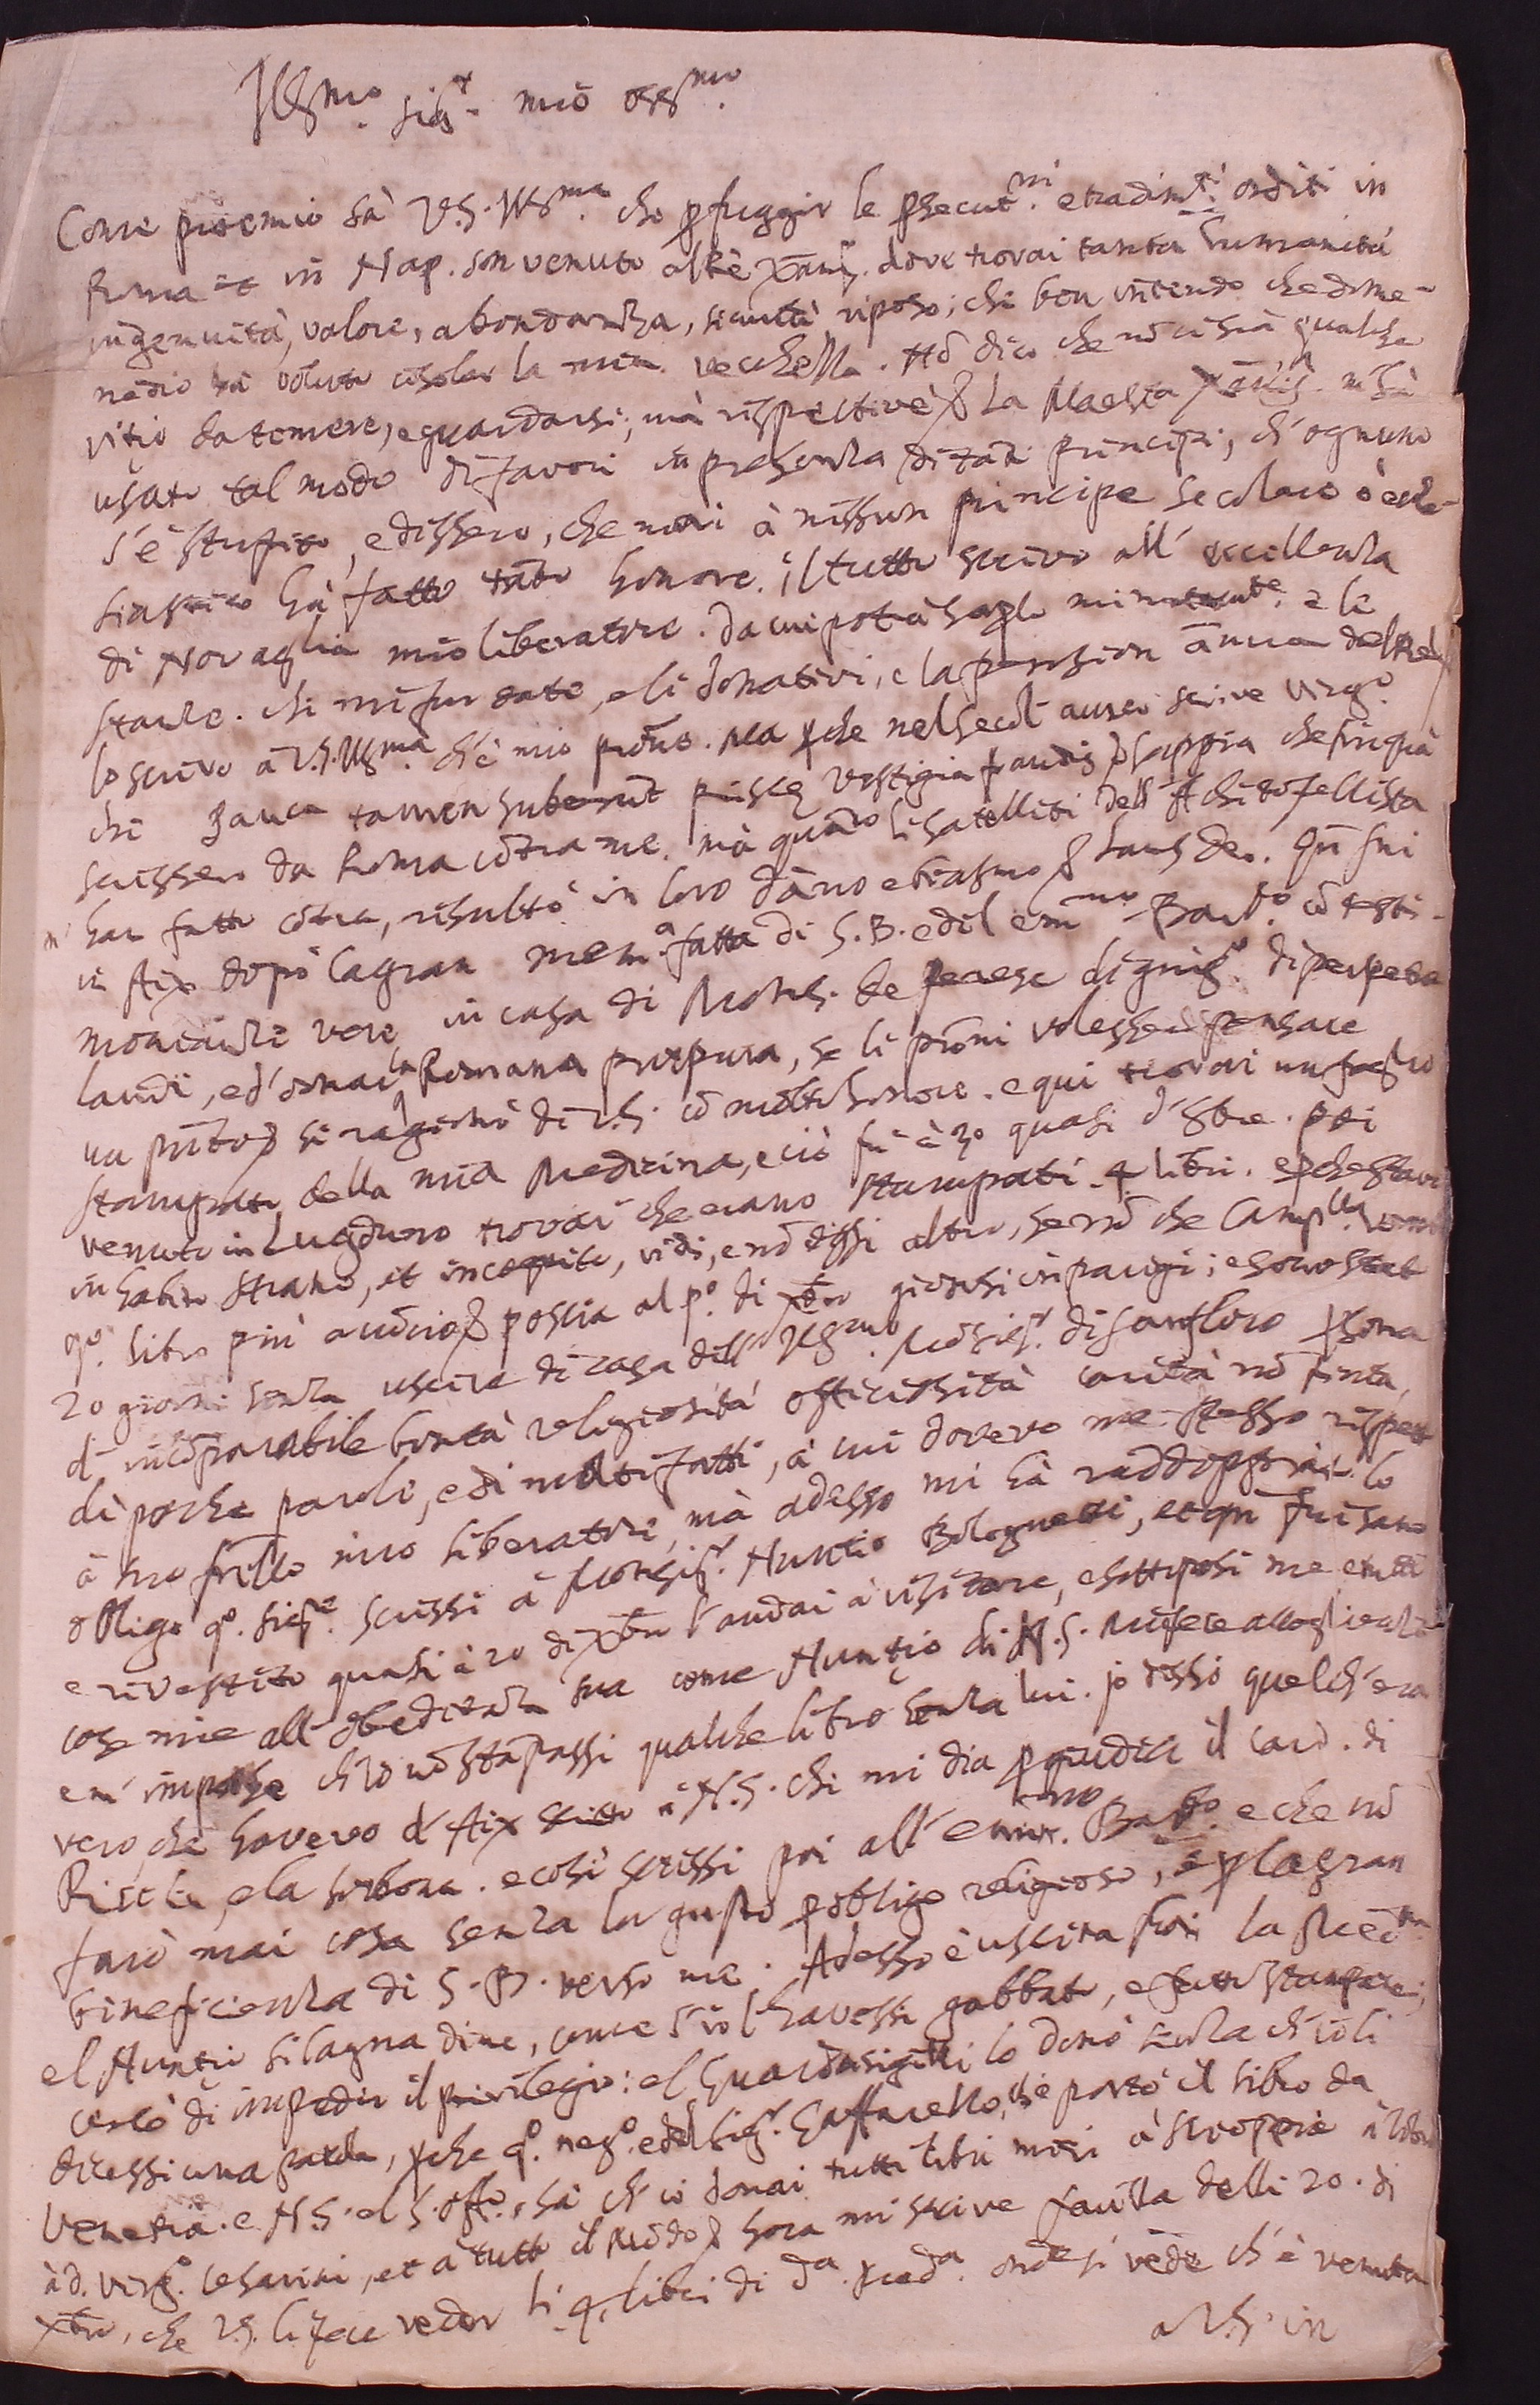 Ill.mo sig.r mio oss.mo
Come può V.S. Ill.ma che p fuggir le psecut.ni e tradim.ti orditi in
Roma et in Nap. son venuto al Rè Xanis. dove trovai tanta humanità
ingenuità, valore, abondanza, sicurtà riposo; chi ben intendo che dome-
nedio hà voluto csolar la mia vecchezza. Nō dico che nō ci sia qualche
vitio da temere, e guardarsi; mà rispective. La Maestà Xanis. m'hà
usato tal modo di favori in presenza di tāti principi, ch'ognuno
s'è stupito, e dissero, che mai à nissun principe secolare ò ecle-
siastico hà fatto tāto honore. il tutto scrivo all' eccellenza
di Novaglia mio liberatore. da cui potrà saplo minutam.te e le
stanze. chi mi fur date, e li donativi, e la pension ānua del Re
lo scrivo à V.S. Ill.ma ch'è mio prōno. Ma pche nel secol aureo scrive Virg.o
chi pauca tamen suberunt priscę vestigia fraudis sappia che fin quà
scrissero da Roma cōtra me. mà quāto li satelliti dell' Achitofellista
m' han fatto cōtra, risultò in loro dāno e biasmo laus Deo. Qn fui
in Aix dopò la gran mem.a fatta di S.B. e del em.mo Barb.o cō testi-
moniāze vere in casa di Mons. de Peresc dignis.o di perpetua
laude, e d'ornar la Romana purpura, se li prōni volesser pensare
un pūto si ragionò di V.S. cō molto honore. e qui trovai un foglio
stampato della mia Medicina, e ciò fù à 30 quasi d'8bre. poi
venuto in Lugduno trovai che erano stampati 4 libri. e pche stavo
in habito strano, et incognito, vidi, e nō dissi altro, se nō che Camp.lla
q.o libro più poscia al p.o di Xbre giōsi in parigi; e sono stato
20 giorni senza uscire di casa dell' Ill.mo Mōsig.r di sanfloro psona
d' incōparabile bontà religiosità officiosità carità nō finta,
di poche paroli, e di molti fatti, à cui dovevo me stesso rispetto
à suo frēllo mio liberatore, mà adesso mi hà raddoppiato lo
obligo q.o sig.re scrissi à Monsig.r Nuntio Bolognetti, et qn fui sano
e rivestito quasi à 20 di Xbre l'andai à visitare, e sottoposi me e tutti
cose mie all' obedienza sua come Nuntio di N.S. mi fece accoglienze
e m' impose ch'io nō stāpassi qualche libro senza lui. io disse quel ch'era
vero, che havevo d' Aix scritto à N.S. chi mi dia p giudici il card. di
Riscelù, e la sorbona. e così scrissi poi all' emin.mo Barb.o e che nō
farò mai cosa senza lor gusto p obligo religioso, e p la gran
beneficienza di S.B. verso me. Adesso è uscita fuori la Med.na
el Nuntio si lagna di me, come s'io l'havessi gabbato, e fatto stampare;
cercò di impedir il privilegio: el Guardasigilli lo donò senza ch'io li
dicessi una parola, pche q.o neg.o e del sig.r Gaffarello, chi portò il libro da
Venetia. e N.S. el S. off.o sà ch'io donai tutti libri miei
à d. Virg.o Cesarini, et à tutto il mōdo hora mi scrive favilla delli 20. di
Xbre, che V.S. li fece veder li 4 libri di d.a Med.a onde si vede ch'è venuta
a V.S. in